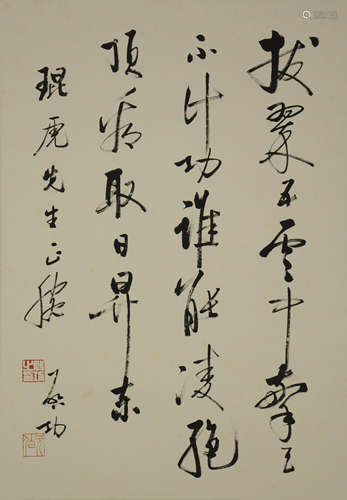 拔翠五云中擎天
不计功谁能凌绝
顶看取日昇东
琨虎先生正腕
启功